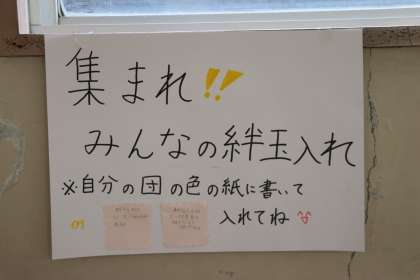 集まれ!!
みんなの絆玉入れ
※自分の団の色の紙に書いて
入れてね